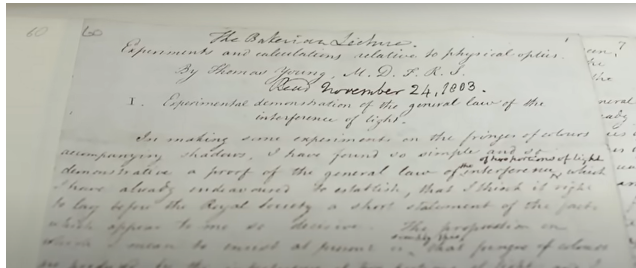 60
The Bakerian Lecture.
Experiments and calculations relative to physical optics.
By Thomas Young, M. D. F. R. S.
Read November 24, 1803.
I. Experimental demonstration of the general law of the
interference of light.
In making some experiments on the fringes of colours
accompanying shadows, I have found so simple and so
of two portions of light
demonstrative a proof of the general law of the interference, which
I have already endeavoured to establish, that I think it right
to lay before the Royal Society a short statement of the facts
which appear to me so decisive. The proposition on
simply this,
which I mean to insist at present is, that fringes of colours